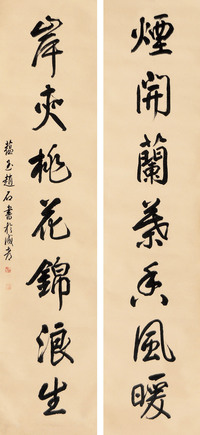 煙開蘭葉香風暖
岸夾桃花錦浪生
蘊玉趙石書於成考